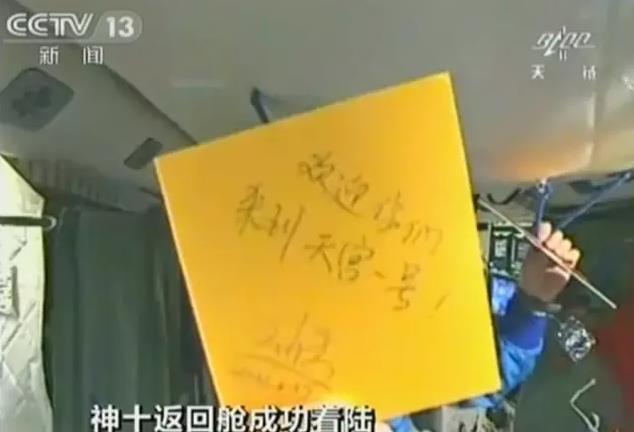 CCTV 13
新闻
天试
欢迎你们
来到天宫一号！
神十返回舱成功着陆